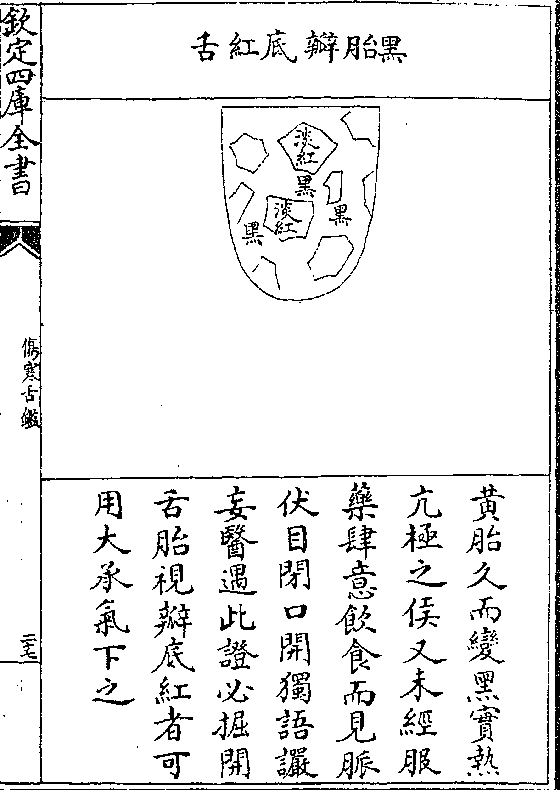 黑胎瓣底紅舌
淡紅
黑
黑
淡紅
黑
黃胎久而變黑實熱
亢極之候又未經服
藥肆意飲食而見脈
伏目閉口開獨語讝
妄醫遇此證必掘開
舌胎視瓣底紅者可
用大承氣下之
欽定四庫全書
傷寒舌鑑